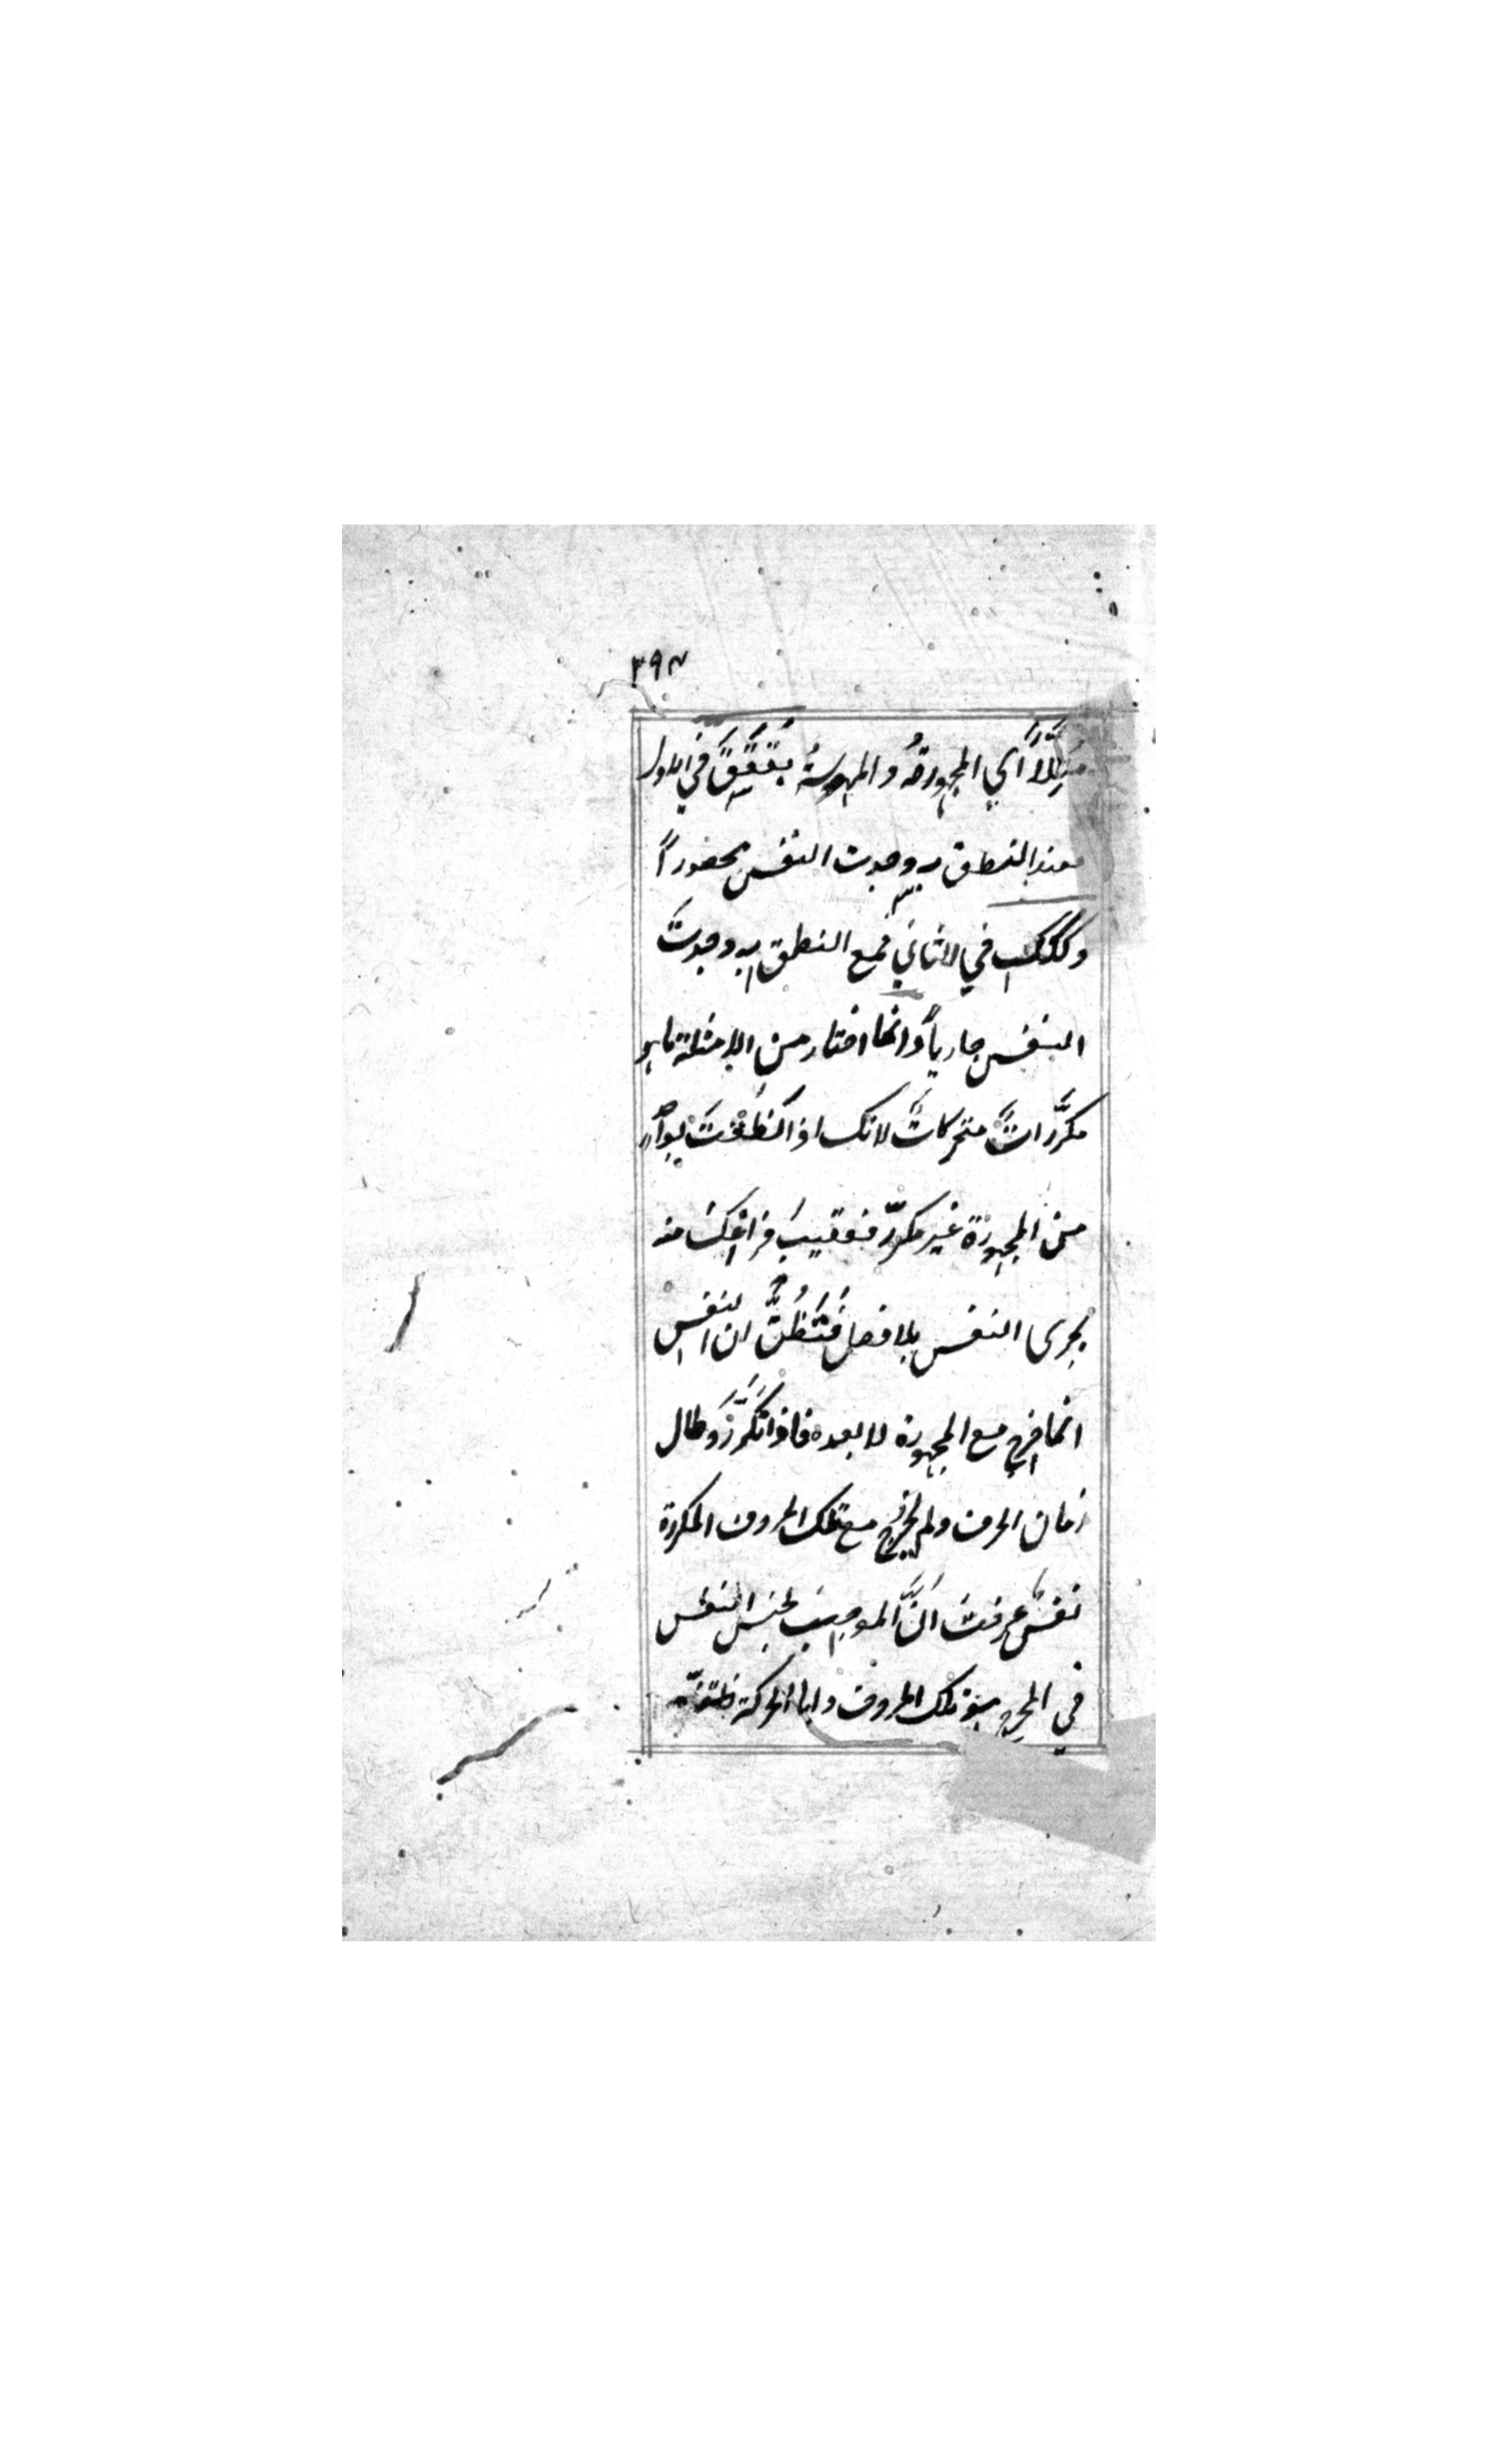 ٣٩٧
مُثِّلَا أي المجهورةُ والمهموسةُ بقَقَقَ في الاول
فعند النطق به وجدت النفس محصوراً
وككك في الثاني فمع النطق به وجدتَ
النفس جارياً وانما اختار من الامثلة ما هو
مكرَّراتٌ متحركاتٌ لانك اذا نطقْتَ بواحدٍ
من المجهورة غير مكرّر فعقيبَ فراغك منه
يجرى النفس بلا فصل فتَظُنُّ ان النفس
انما خرج مع المجهورة لا بعده فاذا تكَرَّرَ وطال
زمان الحرف ولم يخرج مع تلك الحروف المكررة
نفسٌ عرفتَ أنَّ الموجبَ لحبس النفس
في المجهور هو تلك الحروف واما الحركة